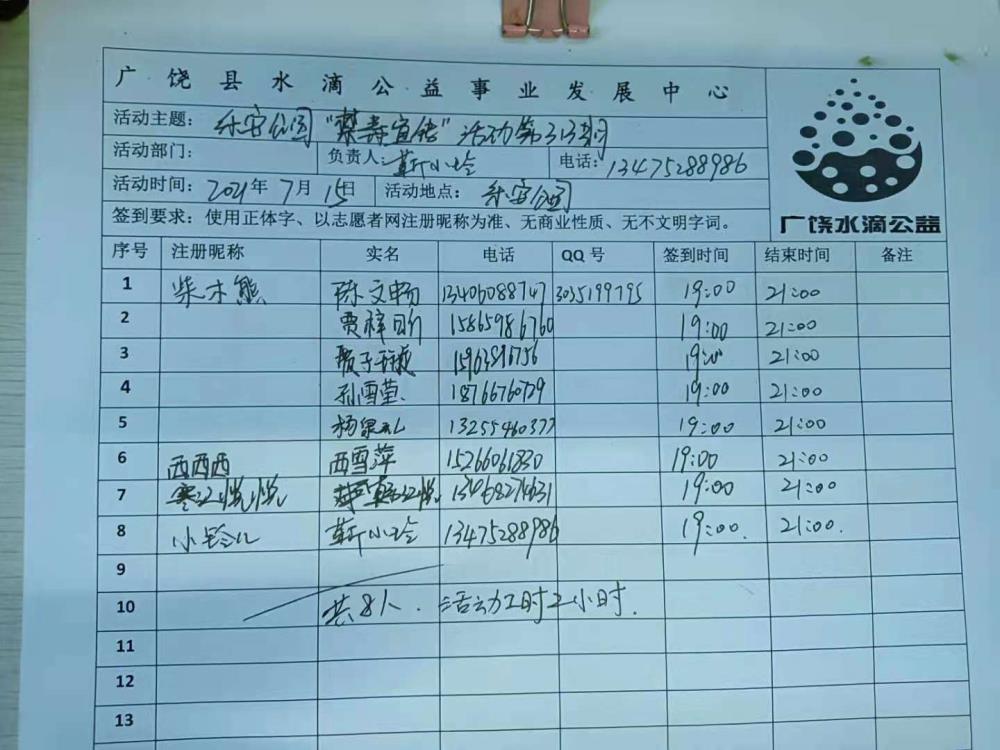 广饶县水滴公益事业发展中心
活动主题: 乐安公园“禁毒宣传”活动第313期
活动部门: 负责人: 靳小玲 电话: 13475288986
活动时间: 2021年 7月 15日 活动地点: 乐安公园
签到要求: 使用正体字、以志愿者网注册昵称为准、无商业性质、无不文明字词。
广饶水滴公益
序号 注册昵称 实名 电话 QQ 号 签到时间 结束时间 备注
1 柴木熊 陈文畅 13406088747 3035199795 19:00 21:00
2 贾梓昕 15865986760 19:00 21:00
3 21:00
4 孙雪莹 18766760729 19:00 21:00
5 13255460377 19:00 21:00
6 西西西 西雪萍 15266061830 19:00 21:00
7 寒江悦悦 134068274631 19:00 21:00
8 小玲儿 靳小玲 13475288986 19:00. 21:00.
9
10 共8人. 活动工时2小时.
11
12
13